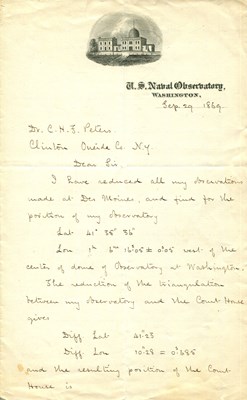 U. S. Naval Observatory,
WASHINGTON,
Sep. 29 1869.
Dr. C. H. F. Peters
Clinton Oneida Co. N.Y.
Dear Sir.
I have reduced all my observations
made at Des Moines, and find for the
position of my observatory
Lat 41° 35' 36"
Lon 1h 6m 16s.05 ± 0s.05 west of the
center of dome of Observatory at Washington.
The reduction of the triangulation
between my observatory and the Court House
gives
Diff. Lat 41".28
Diff. Lon 10".28 = 0s.685
and the resulting position of the Court
House is